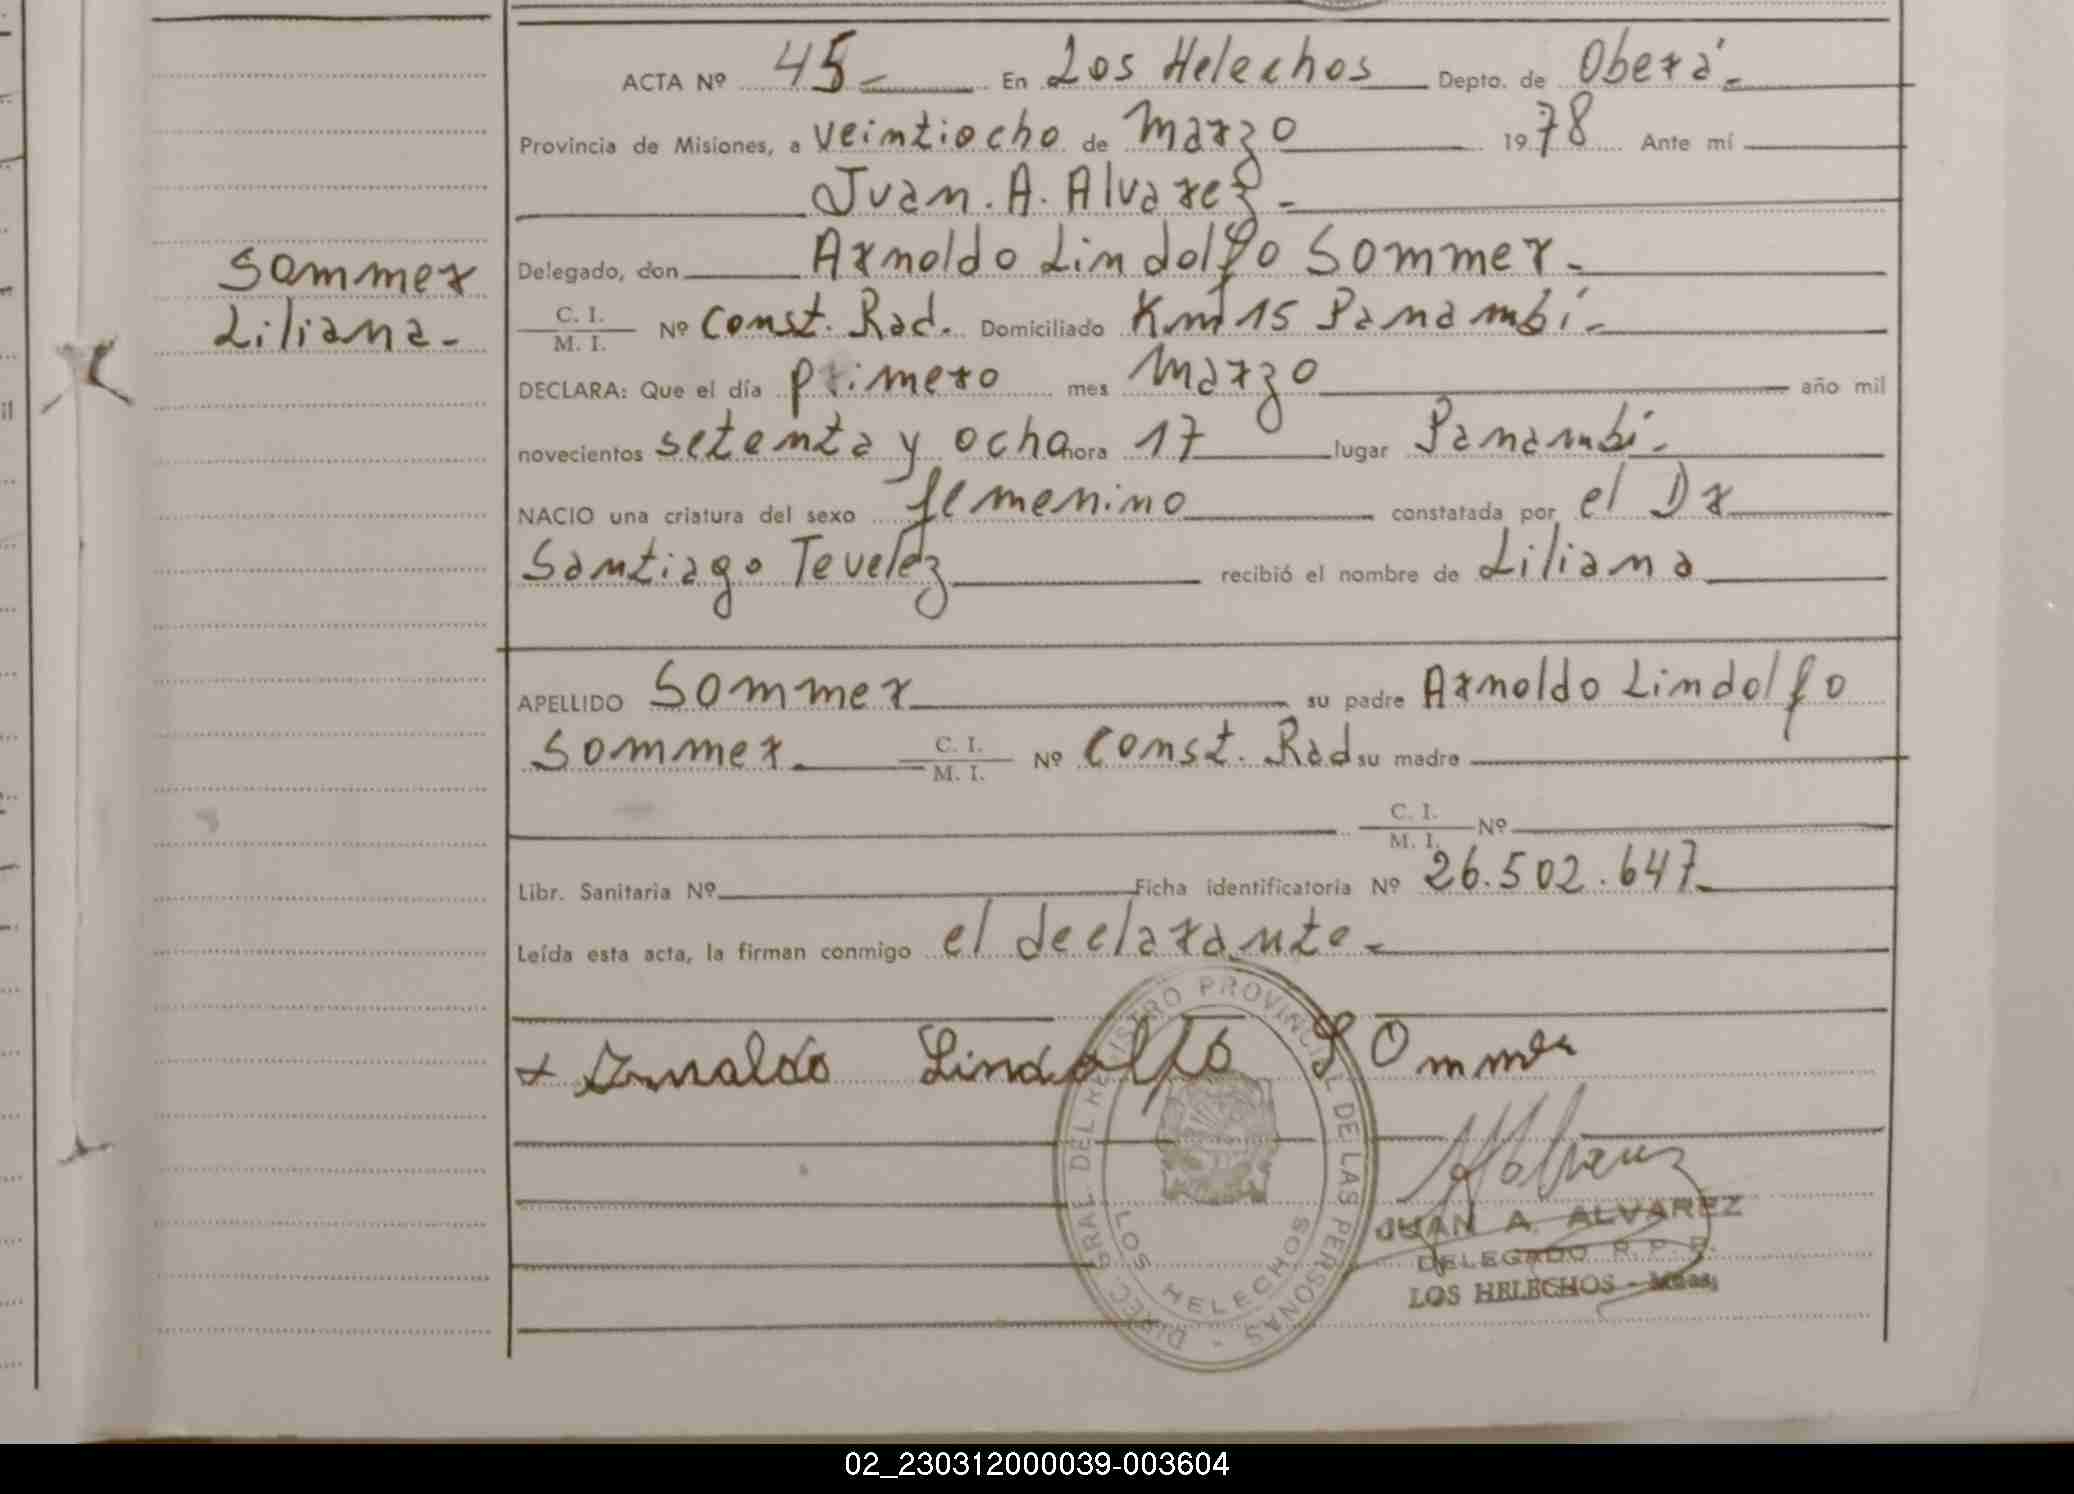 ACTA Nº 45 En Los Helechos Depto. de Oberá
Provincia de Misiones, a veintiocho de Marzo 1978 Ante mí
Juan. A. Alvarez
Sommer
Liliana
Delegado, don Arnoldo Lindolfo Sommer
C. I.
M. I. Nº Const. Rad. Domiciliado Km 15 Panambí
DECLARA: Que el día primero mes Marzo año mil
novecientos setenta y ocho hora 17 lugar Panambí
NACIO una criatura del sexo femenino constatada por el Dr
Santiago Tevelez recibió el nombre de Liliana
APELLIDO Sommer su padre Arnoldo Lindolfo
Sommer C. I.
M. I. Nº Const. Rad su madre
C. I.
M. I. Nº
Libr. Sanitaria Nº Ficha identificatoria Nº 26.502.647
Leída esta acta, la firman conmigo el declarante
Arnoldo Lindolfo Sommer
DIREC. GRAL. DEL REGISTRO PROVINCIAL DE LAS PERSONAS -
LOS HELECHOS
JUAN A. ALVAREZ
DELEGADO R. P. P.
LOS HELECHOS - Mnes.
il
02_230312000039-003604